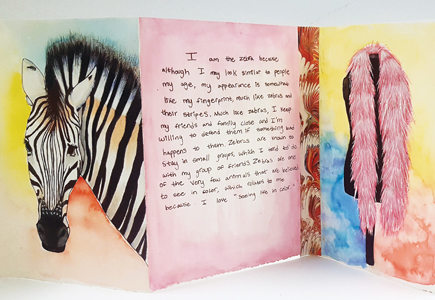 I am the zebra because
although I may look similar to people
my age, my appearance is somewhat
like my fingerprint, much like zebras and
their stripes. Much like zebras, I keep
my friends and family close and I'm
willing to defend them if something bad
happens to them. Zebras are known to
stay in small groups, which I tend to do
with my group of friends. Zebras are one
of the very few animals that are believed
to see in color, which relates to me
because I love "seeing life in color".